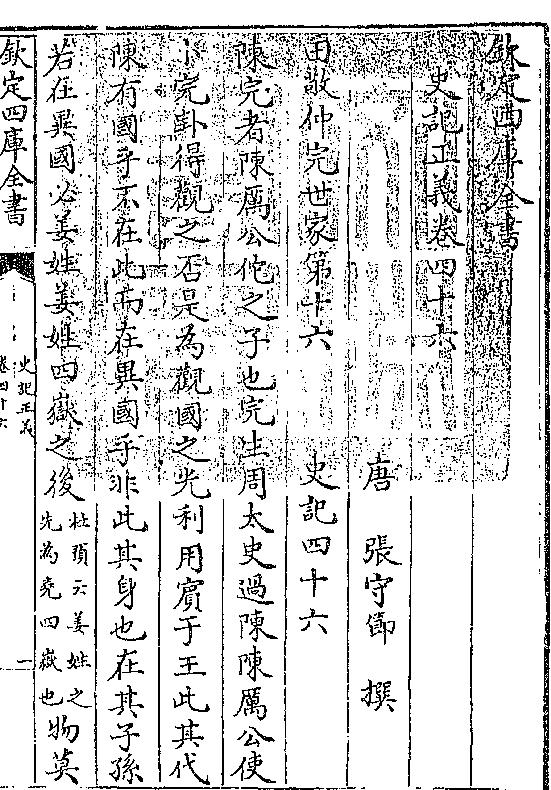 欽定四庫全書
史記正義卷四十六
唐 張守節 撰
田敬仲完世家第十六 史記四十六
陳完者陳厲公佗之子也完生周太史過陳陳厲公使
卜完卦得觀之否是為觀國之光利用賓于王此其代
陳有國乎不在此而在異國乎非此其身也在其子孫
若在異國必姜姓姜姓四嶽之後杜預云姜姓之先為堯四嶽也物莫
欽定四庫全書
史記正義
卷四十六
一